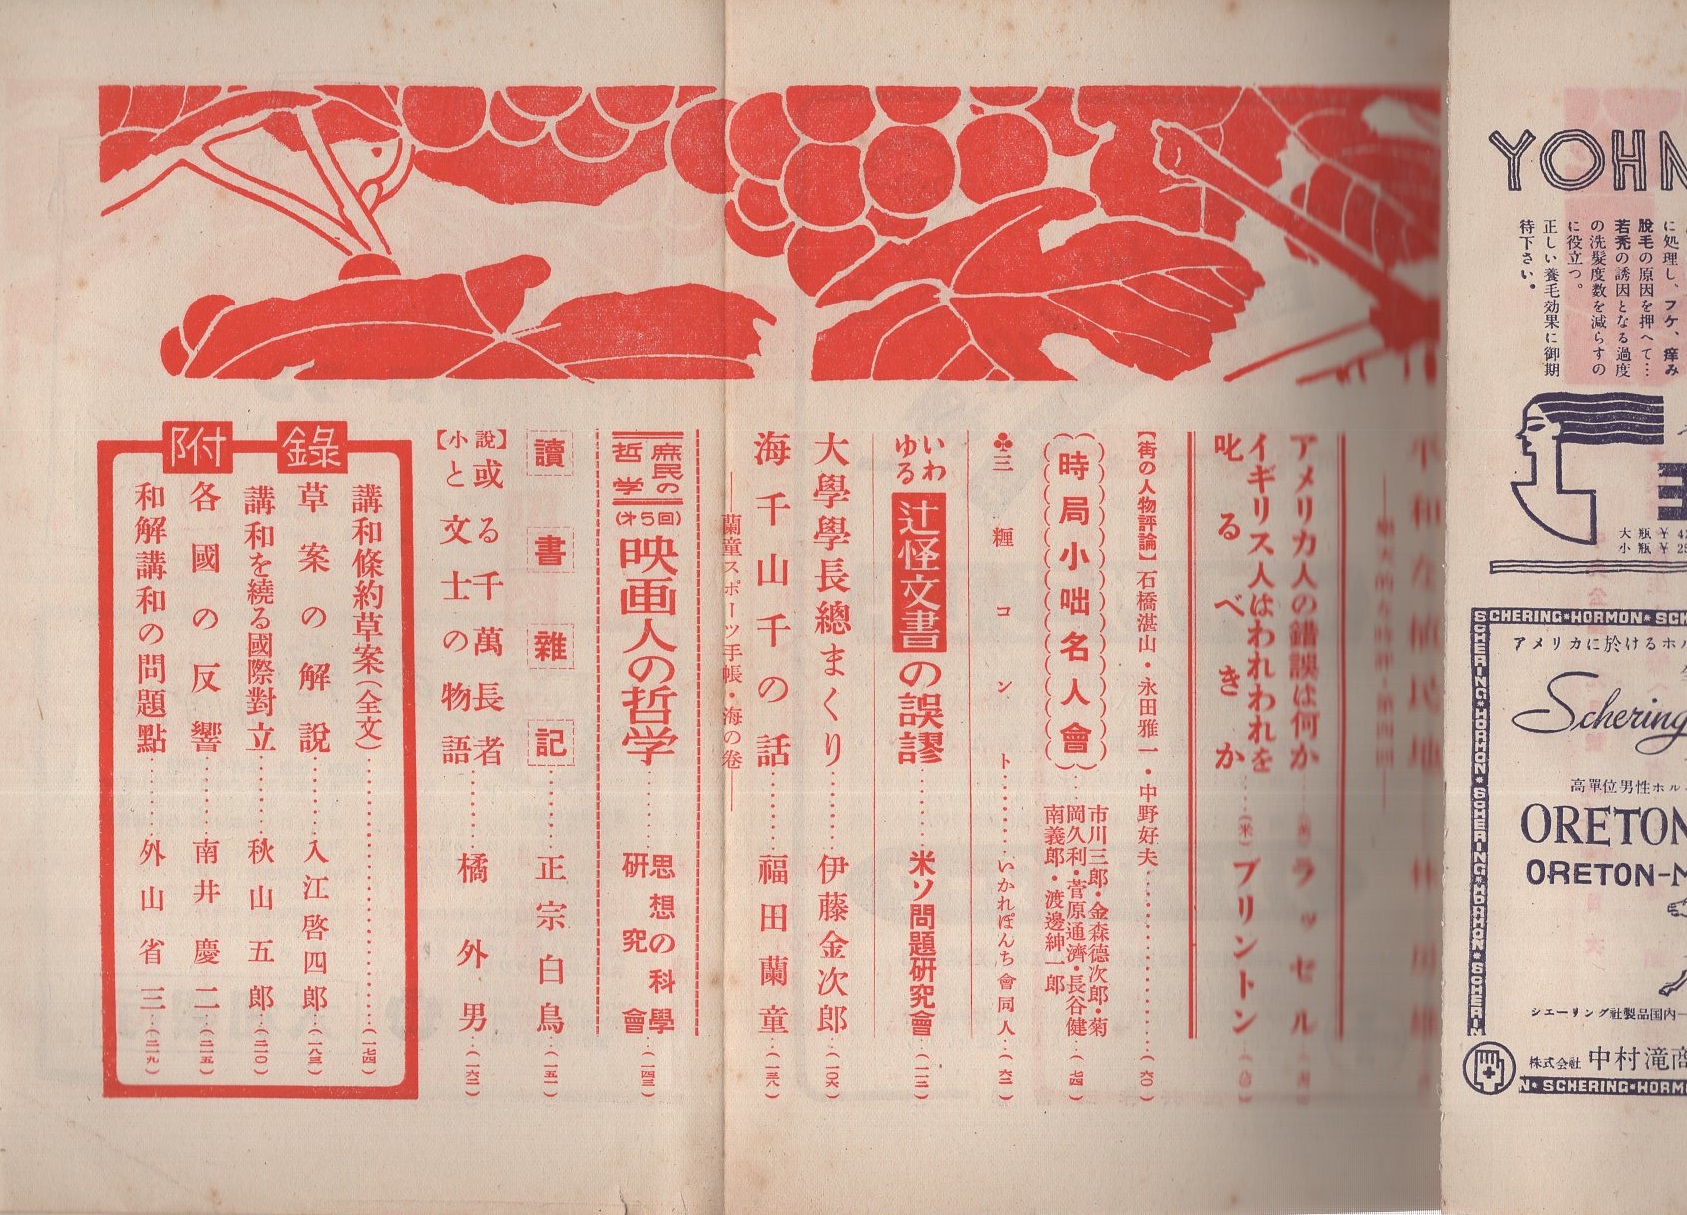 平和な植民地
アメリカ人の錯誤は何か
ラッセル
イギリス人はわれわれを
叱るべきか
(米)プリントン
【街の人物評論】石橋湛山・永田雅一・中野好夫………(六〇)
時局小咄名人會
市川三郎・金森德次郎・菊
岡久利・菅原通濟・長谷健
南義郎・渡邊紳一郎
(七四)
♣三糎コント………いかれぽんち會同人…(六二)
いわゆる辻怪文書の誤謬………米ソ問題硏究會…(一一二)
大學學長總まくり………伊藤金次郎…(一〇六)
海千山千の話………福田蘭童…(一三八)
―蘭童スポーツ手帳・海の卷―
庶民の哲学
(才5回)
映画人の哲学………思想の科學硏究會…(一四三)
讀書雜記………正宗白鳥…(一五一)
【小說】
或る千萬長者
と文士の物語………橘外男…(一六二)
附錄
講和條約草案(全文)………(一七四)
草案の解說………入江啓四郎…(一八三)
講和を繞る國際對立………秋山五郎…(二一〇)
各國の反響………南井慶二…(二一五)
和解講和の問題點………外山省三…(二一九)
YOHN
に処理し、フケ、痒み
脫毛の原因を押へて…
若禿の誘因となる過度
の洗髮度数を減らすの
に役立つ。
正しい養毛効果に御期
待下さい。
大瓶 ¥
小瓶 ¥
SCHERING*HORMON*SCH
アメリカに於けるホル
Schering
高單位男性ホル
ORETON
ORETON-M
シエーリング社製品国内一
株式会社 中村滝商
SCHERING*HORMON*SCHERING*HORMON*SCHERING*HORMON*SCHERIN
N*SCHERING*HORM